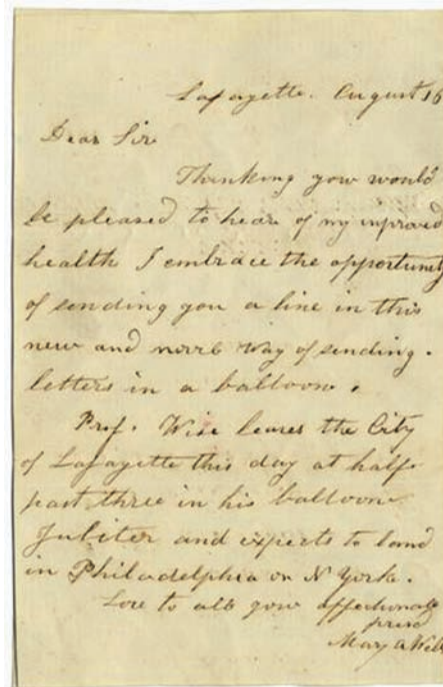 Lafayette. August 16
Dear Sir
Thinking yow would
be pleased to hear of my improved
health I embrace the opportunity
of sending you a line in this
new and novel way of sending.
letters in a balloon.
Prof. Wise leaves the City
of Lafayette this day at half
past three in his balloon
Jubiter and expects to land
in Philadelphia or N York.
Love to all yow affectionate
friend
Mary A Wells